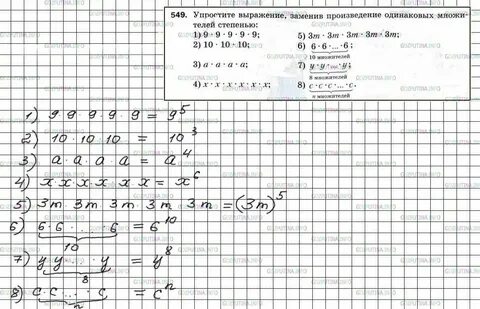 549. Упростите выражение, заменив произведение одинаковых множи-
телей степенью:
1) 9 · 9 · 9 · 9 · 9;
2) 10 · 10 · 10;
3) a · a · a · a;
4) x · x · x · x · x · x;
5) 3m · 3m · 3m · 3m · 3m;
6) 6 · 6 · ... · 6;
10 множителей
7) y · y · ... · y;
8 множителей
8) c · c · c · ... · c.
n множителей
1) 9 9 · 9 · 9 · 9 = 9⁵
2) 10 · 10 · 10 = 10³
3) a · a · a · a = a⁴
4) x x x · x · x x = x⁶
5) 3m · 3m · 3m · 3m · 3m = (3m)⁵
6) 6 · 6 · ... · 6 = 6¹⁰
10
7) y y · ... · y = y⁸
8
8) c · c · ... · c = cⁿ
n